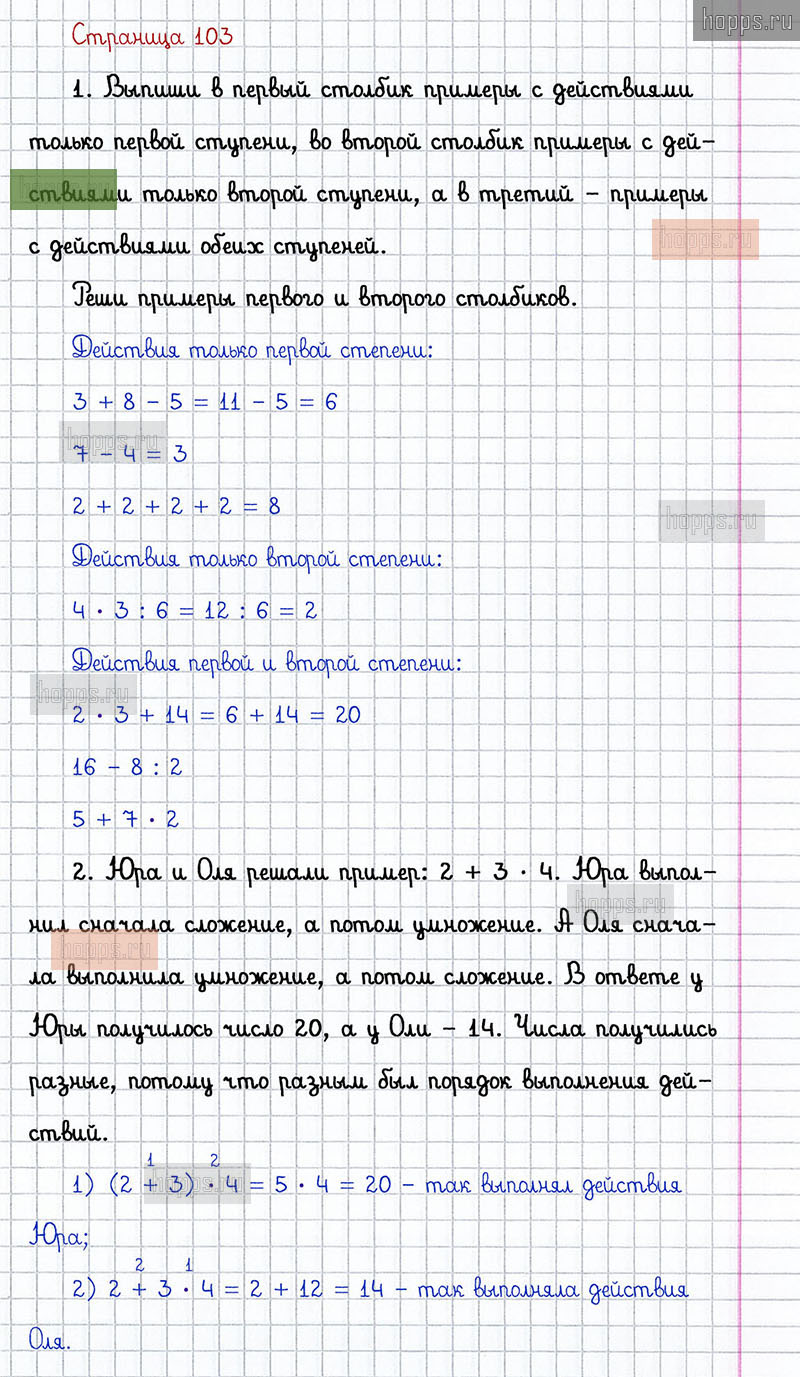 hopps.ru
Страница 103
1. Выпиши в первый столбик примеры с действиями
только первой ступени, во второй столбик примеры с дей-
ствиями только второй ступени, а в третий - примеры
hopps.ru
с действиями обеих ступеней.
Реши примеры первого и второго столбиков.
Действия только первой степени:
3 + 8 - 5 = 11 - 5 = 6
hopps.ru
7 - 4 = 3
2 + 2 + 2 + 2 = 8
hopps.ru
Действия только второй степени:
4 · 3 : 6 = 12 : 6 = 2
Действия первой и второй степени:
hopps.ru
2 · 3 + 14 = 6 + 14 = 20
16 - 8 : 2
5 + 7 · 2
2. Юра и Оля решали пример: 2 + 3 · 4. Юра выпол-
hopps.ru
нил сначала сложение, а потом умножение. А Оля снача-
hopps.ru
ла выполнила умножение, а потом сложение. В ответе у
Юры получилось число 20, а у Оли - 14. Числа получились
разные, потому что разным был порядок выполнения дей-
ствий.
1 2
1) (2 + 3) · 4 = 5 · 4 = 20 - так выполнял действия
hopps.ru
Юра;
2 1
2) 2 + 3 · 4 = 2 + 12 = 14 - так выполняла действия
Оля.